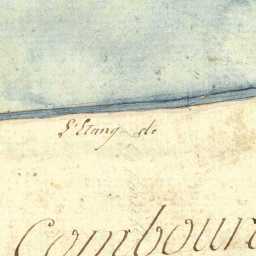 L'Etang de
Combour